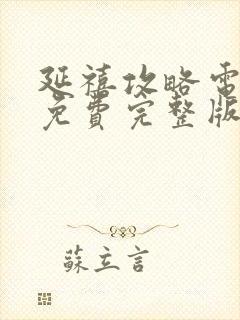 延禧攻略電
免費完整版
蘇立言